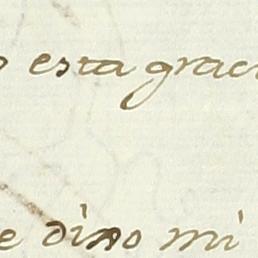 o esta grac
e dino mi